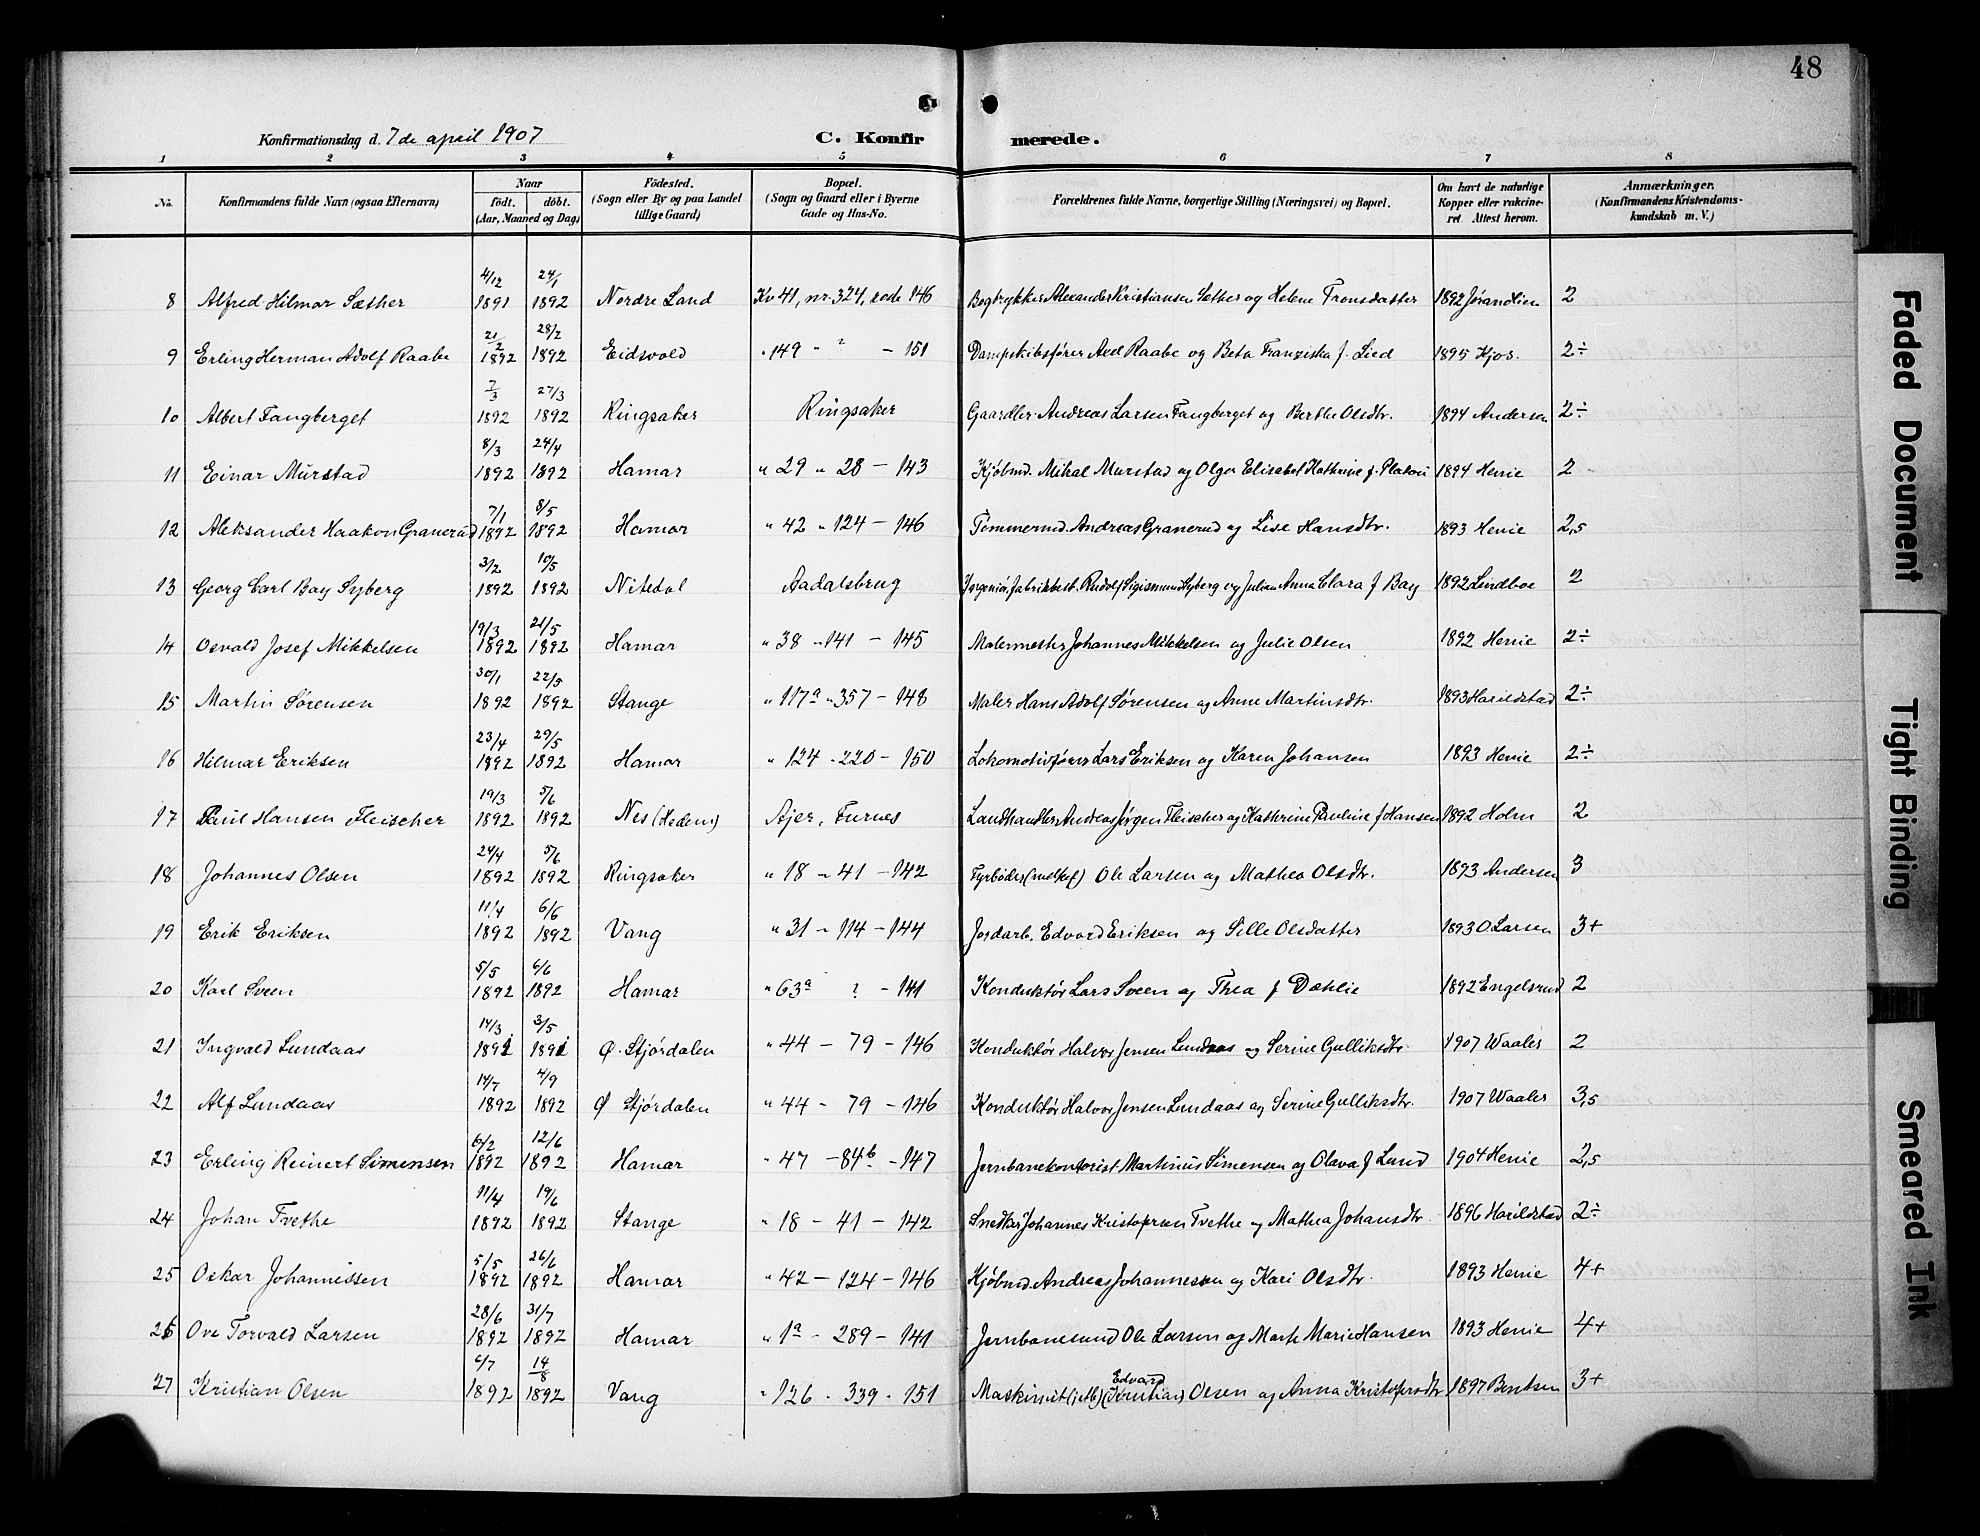 48
Konfirmationsdag d. 7de april 1907 C. Konfirmerede.
1 2 3 4 5 6 7 8
No. Konfirmandens fulde Navn (ogsaa Efternavn) Naar födt. döbt. (Aar, Maaned og Dag) Födested. (Sogn eller By og paa Landet tillige Gaard) Bopæl. (Sogn og Gaard eller i Byerne Gade og Hus-No. Forældrenes fulde Navne, borgerlige Stilling (Næringsvei) og Bopæl. Om havt de naturlige Kopper eller vakcineret. Attest herom. Anmærkninger. (Konfirmandens Kristendomskundskab m. V.)
8 Alfred Hilmar Sæther 4/12 1891 24/1 1892 Nordre Land Kv 41, nr. 324, rode 146 Bogtrykker Alexander Kristiansen Sæther og Helene Tronsdatter 1892 Jørandlien 2
9 Erling Herman Adolf Raabe 21/2 1892 28/2 1892 Eidsvold " 149 " ? - 151 Dampskibsfører Axel Raabe og Beta Franziska f. Lied 1895 Kjos. 2÷
10 Albert Fangberget 7/3 1892 27/3 1892 Ringsaker Ringsaker Gaardbr. Andreas Larsen Fangberget og Berthe Olsdtr. 1894 Andersen 2÷
11 Einar Murstad 8/3 1892 24/4 1892 Hamar " 29 " 28 - 143 Kjøbmd. Mikal Murstad og Olga Elisabet Kathrine f. Platou 1894 Henie 2
12 Aleksander Haakon Granerud 7/1 1892 8/5 1892 Hamar " 42 " 124 - 146 Tømmermd. Andreas Granerud og Lise Hansdtr. 1893 Henie 2,5
13 Georg Carl Bay Syberg 3/2 1892 10/5 1892 Nitedal Aadalsbrug Ingeniør, fabrikbest. Rudolf Sigismund Syberg og Julian Anna Clara f Bay 1892 Lindboe 2
14 Osvald Josef Mikkelsen 19/3 1892 21/5 1892 Hamar " 38 " 141 - 145 Malermester Johannes Mikkelsen og Julie Olsen 1892 Henie 2÷
15 Martin Sørensen 30/1 1892 22/5 1892 Stange " 117a " 357 - 148 Maler Hans Adolf Sørensen og Anne Martinsdtr. 1893 Harildstad 2÷
16 Hilmar Eriksen 23/4 1892 29/5 1892 Hamar " 124 " 220 - 150 Lokomotivfører Lars Eriksen og Karen Johansen 1893 Henie 2÷
17 Paul Hansen Fleischer 19/3 1892 5/6 1892 Nes (Hedem) Ajer, Furnes Landhandler Andreas Jørgen Fleischer og Kathrine Pauline f Hansen 1892 Holm 2
18 Johannes Olsen 24/4 1892 5/6 1892 Ringsaker " 18 " 41 - 142 Fyrbøder Ole Larsen og Mathea Olsdtr. 1893 Andersen 3
19 Erik Eriksen 11/4 1892 6/6 1892 Vang " 31 - 114 - 144 Jordarb. Edvard Eriksen og Sille Olsdatter 1893 O Larsen 3+
20 Karl Sveen 5/5 1892 6/6 1892 Hamar " 63a ? - 141 Konduktør Lars Sveen og Thea f Dæhlie 1892 Engelsrud 2
21 Ingvald Lundaas 14/3 1891 3/5 1891 Ø. Stjørdalen " 44 - 79 - 146 Konduktør Halvor Jensen Lundaas og Serine Gulliksdtr. 1907 Waaler 2
22 Alf Lundaas 14/7 1892 4/9 1892 Ø Stjørdalen " 44 - 79 - 146 Konduktør Halvor Jensen Lundaas og Serine Gulliksdtr. 1907 Waaler 3,5
23 Erling Reinert Simensen 6/2 1892 12/6 1892 Hamar " 47 - 84b - 147 Jernbanekontorist Martinus Simensen og Olava f Lund 1904 Henie 2,5
24 Johan Tvethe 11/4 1892 19/6 1892 Stange " 18 - 41 - 142 Snedker Johannes Kristofersen Tvethe og Mathea Johansdtr. 1896 Harildstad 2÷
25 Oskar Johannissen 5/5 1892 26/6 1892 Hamar " 42 - 124 - 146 Kjøbmd. Andreas Johannessen og Kari Olsdtr. 1893 Henie 4+
26 Ove Torvald Larsen 28/6 1892 31/7 1892 Hamar " 1a - 289 - 141 Ole Larsen og Marie Hansen 1893 Henie 4+
27 Kristian Olsen 6/7 1892 14/8 1892 Vang " 126 - 339 - 151 Edvard (Kristian) Olsen og Anna Kristofersdtr 1897 Bentsen 3+
Faded Document
Tight Binding
Smeared Ink